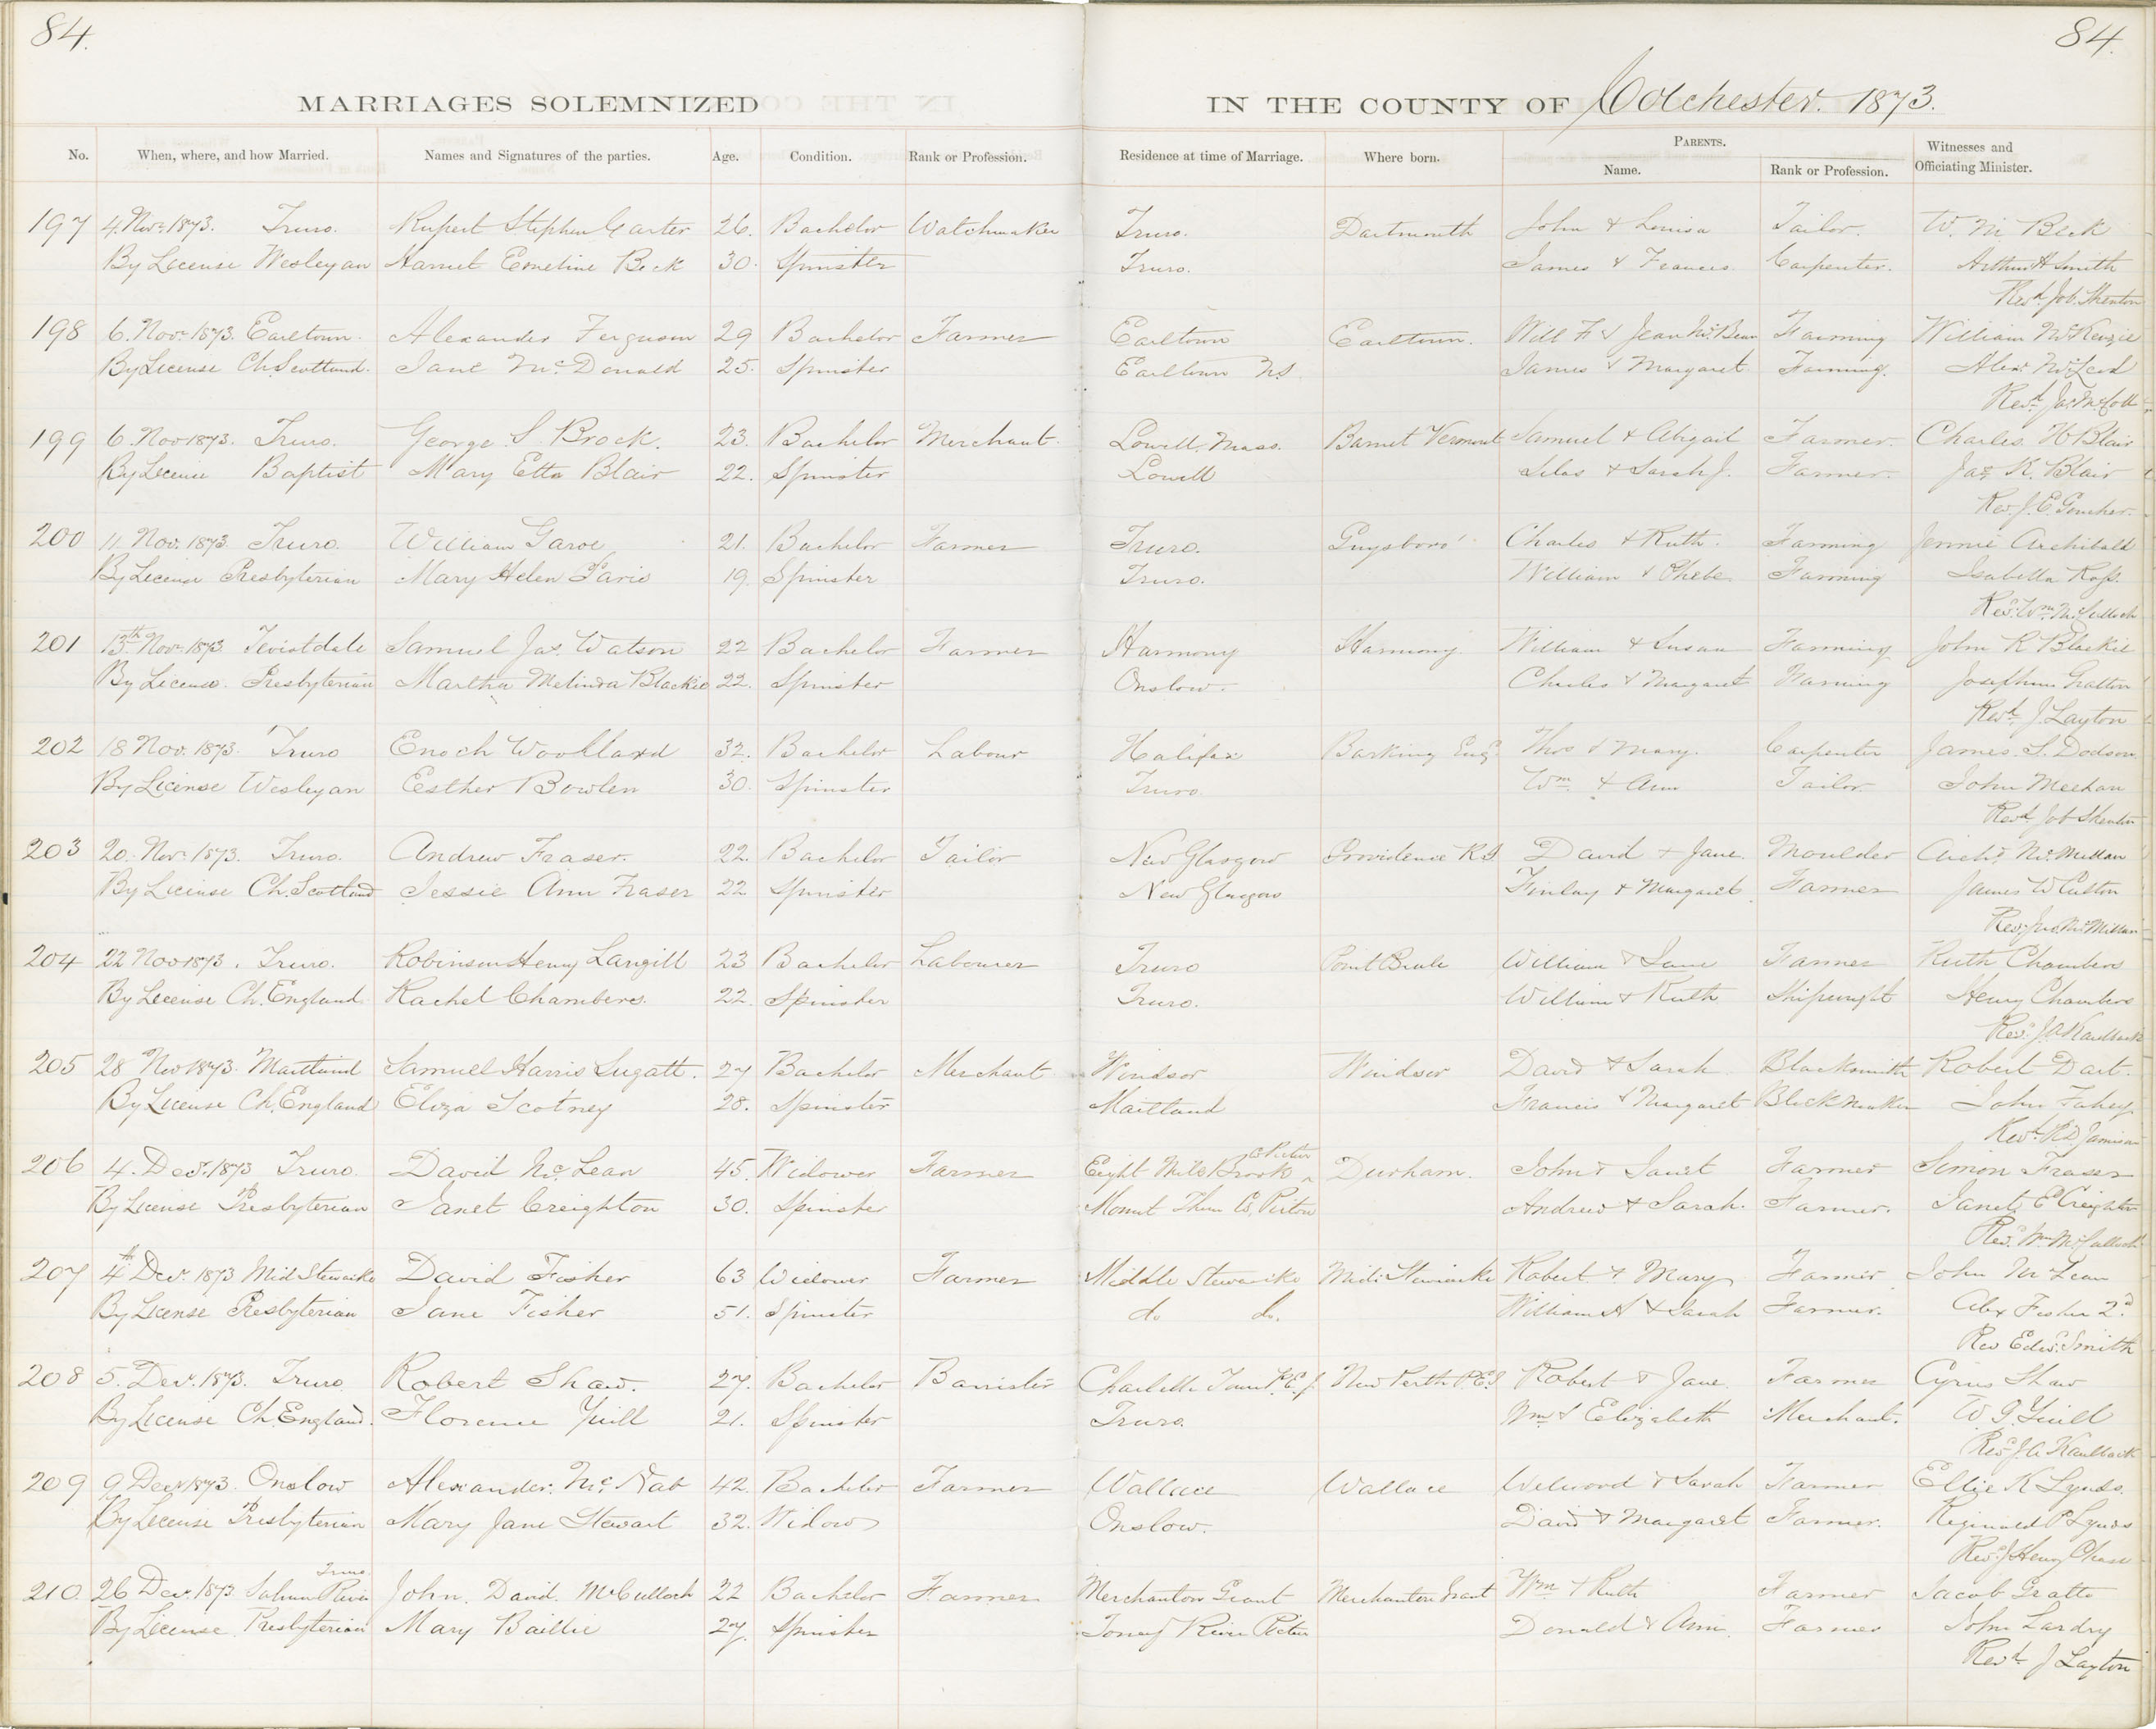 84.
84.
MARRIAGES SOLEMNIZED
IN THE COUNTY OF Colchester. 1873.
No. When, where, and how Married. Names and Signatures of the parties. Age. Condition. Rank or Profession. Residence at time of Marriage. Where born. PARENTS. Name. Rank or Profession. Witnesses and Officiating Minister.
197 4. Nov. 1873. Truro. Rupert Stephen Carter 26. Bachelor Watchmaker Truro. Dartmouth John & Louisa Tailor. W. M Beck
By License Wesleyan Harriet Emeline Beck 30. Spinster Truro. James & Frances Carpenter. Arthur H Smith
Revd. Job. Shenton
198 6. Nov. 1873. Earltown. Alexander Ferguson 29 Bachelor Farmer Earltown Earltown. Will F & Jean McBean Farming William McKenzie
By License Ch. Scotland. Jane McDonald 25. Spinster Earltown N.S. James & Margaret Farming. Alexr McLeod
Revd.
199 6. Nov 1873. Truro. George S. Brock. 23. Bachelor Merchant. Lowell. Mass. Barnet Vermont Samuel & Abigail Farmer. Charles H Blair
By License Baptist Mary Etta Blair 22. Spinster Lowell Silas & Sarah J. Farmer. Jas K. Blair
Rev. J. E. Goucher.
200 11. Nov. 1873. Truro. William 21. Bachelor Farmer Truro. Guysboro' Charles & Ruth. Farming Jennie Archibald
By License Presbyterian Mary Helen 19. Spinster Truro. William & Phebe Farming Isabella Ross.
Revd. Wm McCulloch
201 13th Nov. 1873 Teviotdale Samuel Jas. Watson 22 Bachelor Farmer Harmony Harmony. William & Susan Farming John R Blackie
By License. Presbyterian Martha Melinda Blackie 22. Spinster Onslow. Charles & Margaret Farming Josephine Gratton
Revd. J. Layton
202 18 Nov. 1873. Truro Enoch Woollard 32. Bachelor Labour Halifax Barking Eng. Thos & Mary. Carpenter James. S. Dodson
By License Wesleyan Esther Bowlen 30. Spinster Truro Wm & Ann Tailor John Meehan
Revd Job Shenton
203 20. Nov. 1873. Truro. Andrew Fraser. 22. Bachelor Tailor New Glasgow Providence R.I David & Jane. Moulder Archd. McMillan
By License Ch. Scotland Jessie Ann Fraser 22 Spinster New Glasgow Finlay & Margaret Farmer James W
Rev. McMillan
204 22 Nov 1873. Truro. Robinson Henry Langill 23 Bachelor Labourer Truro Point Brule William & Jane Farmer Ruth Chambers
By License Ch. England Rachel Chambers. 22. Spinster Truro. William & Ruth Shipwright Henry Chambers
Revd. J. A Kaulback
205 28 Nov 1873. Maitland Samuel Harris Sugatt. 27 Bachelor Merchant Windsor Windsor David & Sarah Blacksmith Robert Dart.
By License Ch. England Eliza Scotney 28. Spinster Maitland Francis & Margaret Block Maker John Fahey.
Revd. Jamison
206 4. Dec. 1873 Truro. David McLean 45. Widower Farmer Eight Mile Brook C Pictou Durham. John & Janet Farmer Simon Fraser
By License Presbyterian Janet Creighton 30. Spinster Mount Thom Co. Pictou Andrew & Sarah. Farmer. Janet E Creighton
Rev. Wm McCulloch
207 4th Dec. 1873 Mid Stewiacke David Fisher 63 Widower Farmer Middle Stewiacke Mid. Stewiacke Robert & Mary Farmer John McLean
By License Presbyterian Jane Fisher 51. Spinster do do. William A & Sarah Farmer. Alex Fisher 2d
Rev Edw. Smith
208 5. Dec. 1873. Truro Robert Shaw. 27. Bachelor Barrister Charlotte Town P.E.I. New Perth P.E.I Robert & Jane Farmer Cyrus Shaw
By License Ch. England. Florence Yuill 21. Spinster Truro. Wm & Elizabeth Merchant. W. G. Yuill
Revd J. A Kaulback
209 9 Decr 1873. Onslow Alexander. McNab 42. Bachelor Farmer Wallace Wallace Welwood & Sarah Farmer Ellie K Lynds.
By License Presbyterian Mary Jane Stewart 32. Widow Onslow. David & Margaret Farmer. Reginald P Lynds
Rev. J. Henry Chase
210. 26 Dec. 1873 Salmon River Truro John. David. McCulloch 22 Bachelor Farmer Merchanton Grant Merchanton Grant Wm & Ruth Farmer Jacob Gratto
By License. Presbyterian Mary Baillie 27. Spinster Toney River Pictou Donald & Ann. Farmer John Lardry
Revd. J Layton